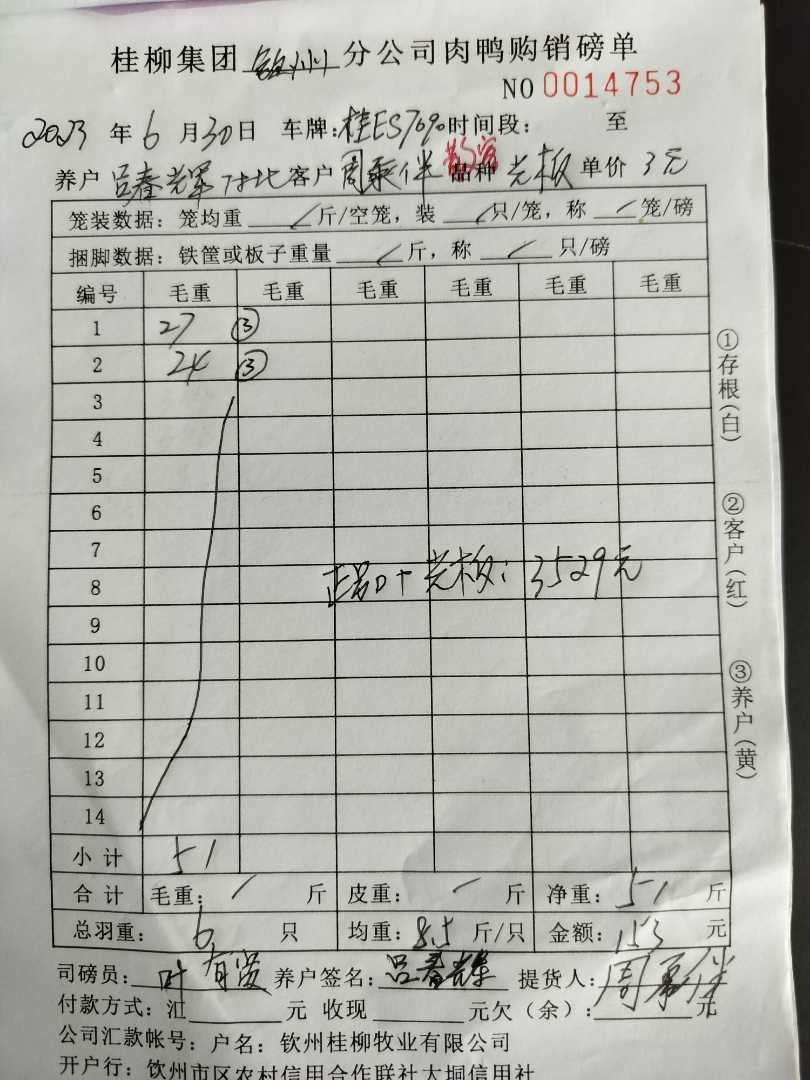 桂柳集团 钦州 分公司肉鸭购销磅单
NO 0014753
2023 年 6 月 30 日 车牌: 桂ES7690 时间段: 至
养户 吕春辉 客户 周 伴 散客 品种 光板 单价 3元
笼装数据: 笼均重 / 斤/空笼, 装 / 只/笼, 称 / 笼/磅
捆脚数据: 铁筐或板子重量 / 斤, 称 / 只/磅
编号 毛重 毛重 毛重 毛重 毛重 毛重
1 27 ③
2 24 ③
3
4
5
6
7
8
正品 + 光板: 3529元
9
10
11
12
13
14
小计 51
合计 毛重: / 斤 皮重: / 斤 净重: 51 斤
总羽重: 6 只 均重: 8.5 斤/只 金额: 153 元
司磅员: 叶有 养户签名: 吕春辉 提货人: 周 伴
付款方式: 汇 元 收现 元欠(余): 元
公司汇款帐号: 户名: 钦州桂柳牧业有限公司
开户行: 钦州市区农村信用合作联社大垌信用社
①存根(白)
②客户(红)
③养户(黄)